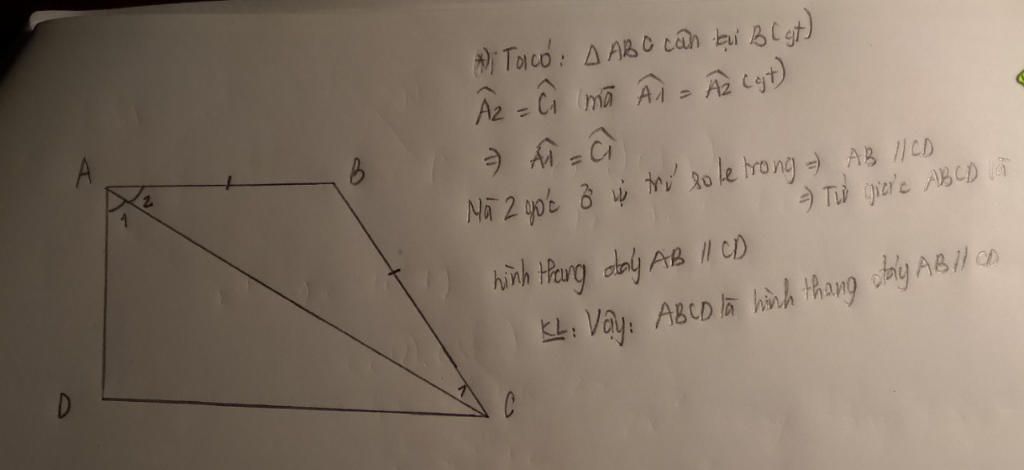 *) Ta có: Δ ABC cân tại B (gt)
Â2 = Ĉ1 (mà Â1 = Â2 (gt)
⇒ Â1 = Ĉ1
Mà 2 góc ở vị trí so le trong ⇒ AB // CD
⇒ Tứ giác ABCD là
hình thang đáy AB // CD
KL: Vậy: ABCD là hình thang đáy AB // CD
A
B
2
1
1
D
C